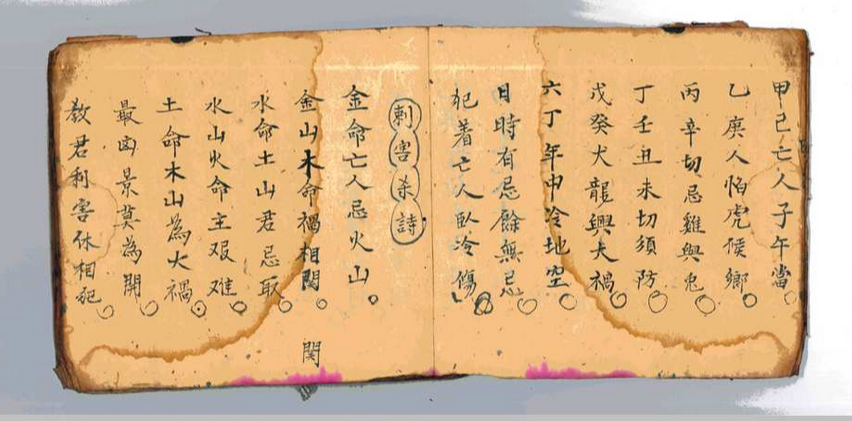 甲己亡人子午當
乙庚人怕虎猴鄉
丙辛切忌雞與兔
丁壬丑未切須防
戊癸犬龍與大禍
六丁年中冷地空
日時有忌餘無忌
犯着亡人臥冷傷
刺害杀詩
金命亡人忌火山
金山木命禍相関
関
水命土山君忌取
水山火命主艰难
土命木山為大禍
最凶景莫為開
教君利害休相犯